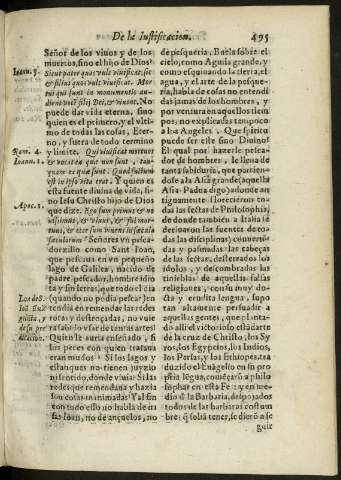 De la Iustificacion. 495
Señor de los viuos y de los
muertos, sino el hijo de Dios?
Ioan. 5. Sicut pater quos vult viuificat, sic
& filius quos vult viuificat. Mor
tui qui sunt in monumentis au-
dient vocẽ filij Dei, & viuent. No
puede dar vida eterna, sino
quien es el primero, y el vlti-
mo de todas las cosas, Eter-
no, y fuera de todo termino
Rom. 4. y limite. Qui viuificat mortuos
Ioann. 1. & vocat ea quæ non sunt, tan-
quam ea quæ sunt. Quod factum
est in ipso vita erat. Y quien es
esta fuente diuina de vida, si-
no Iesu Christo hijo de Dios
Apoc. 1. que dize. Ego sum primus & no
uissimus, & viuus, & fui mor-
tuus, & ecce sum viuens in sæcula
sæculorum? Señores vn pesca-
dorzillo como Sant Ioan,
que pescaua en vn pequeño
lago de Galilea, nacido de
padre pescador, hombre idio
ta y sin letras, que todo el dia
(quando no podia pescar) en
tendia en remendar las redes
rotas y destroçadas, no pu-
ra
Quien le auia enseñado, si
los peces con quien trataua
eran mudos? Si los lagos y
estanques no tienen juyzio
ni sentido, donde viuia? Si las
redes que remendaua y hazia
son cosas inanimadas? Y al fin
con todo esso no habla de in-
Ioan, no de anzuelos, no
de pesqueria. Buela sobre el
cielo, como Aguila grande, y
como esquinando la tierra, el
agua, y el arte de la pesque-
ria, habla de cosas no entendi
das jamas de los hombres, y
por ventura en aquellos tiem
pos, no explicadas tampoco
a los Angeles. Que spiritu
puede ser este sino Diuino?
El qual por hazerle pesca-
dor de hombres, le llena de
tanta sabiduria, que partien-
dose a la Asia (donde, aquella
Asia Padua digo) adonde an
tiguamente florecieron to
das las sectas de Philosophia,
de donde tambien a Italia se
deriuaron las fuentes de to-
das las disciplinas) conuerti-
das y pasmadas las cabeças
de las sectas, desterrados los
idolos, y descombradas las
tinieblas de aquellas falsas
religiones, con su muy do-
cta y erudita lengua, supo
tan altamente persuadir a
aquellas gentes, que plantan-
do alli el victorioso estãdarte
de la cruz de Christo, los Sy
ros, los Egypcios, los Indios,
los Persas, y los Ethiopes, tra
duzido el Euãgelio en su pro
pria lẽgua, començarõ a philo
sophar en esta Fe: y en me-
dio de la Barbaria, despojados
todos de las barbaras costum
bre
guir